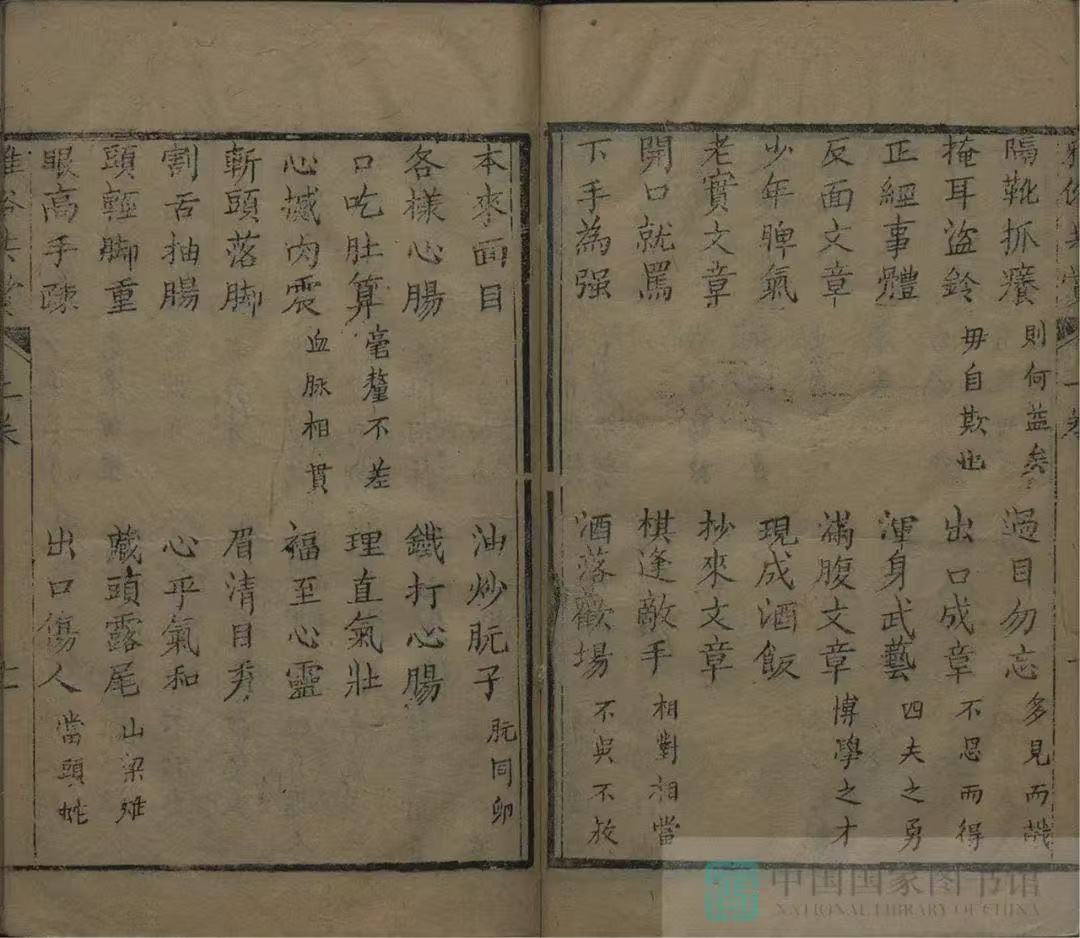 隔靴抓癢 則何益矣 過目勿忘 多見而識
掩耳盜鈴 毋自欺也 出口成章 不思而得
正經事體 渾身武藝 四夫之勇
反面文章 滿腹文章 博學之才
少年脾氣 現成酒飯
老實文章 抄來文章
開口就罵 棋逢敵手 相對相當
下手為强 酒落歡場 不吳不敖
本來面目 油炒朊子 朊同卵
各樣心腸 鐵打心腸
口吃肚算 毫釐不差 理直氣壯
心撼肉震 血脉相貫 福至心靈
斬頭落脚 眉清目秀
割舌抽腸 心平氣和
頭輕脚重 藏頭露尾 山梁雉
眼高手疎 出口傷人 當頭
雅俗共賞
中国国家图书馆
NATIONAL LIBRARY OF CHINA